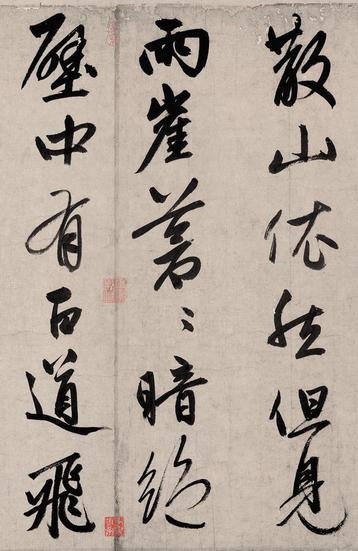 散山依然但見
兩崖蒼〻暗絕
壁中有百道飛